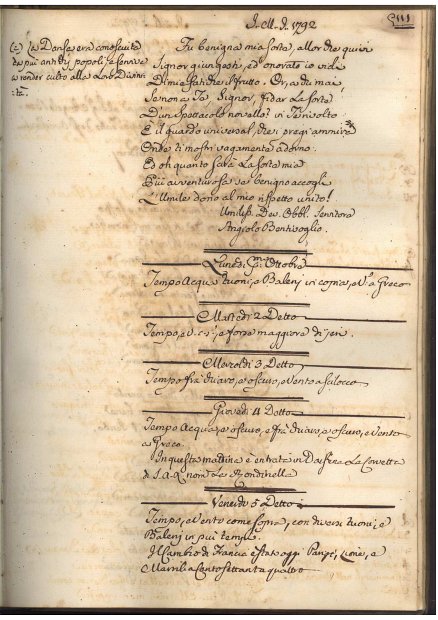 J. M. J. 1792
111
(a) La Danza era conosciuta
da più antichi popoli, e serviva
a render culto alle Loro Divini-
tà.
Fu benigna mia sorte, allor che quivi
Signor giungesti, ed onorato io vidi
Di mie fatiche il frutto. Or, a chi mai
Se non a Te, Signor, fidar La sorte
D'un spettacolo novello? in Te rivolto
È il guardo universal, che i pregi ammira
Onde ti mostri vagamente adorno.
Ed oh quanto sarà La sorte mia
Più avventurosa se benigno accogli
L'Umile dono al mio rispetto unito!
Umiliss. Dev. Obbl. Servitore
Angiolo Bentivoglio.
Lunedì Pmo. Ottobre
Tempo Acqua, tuoni, e Baleni in copia, e Vto a Greco
Martedì 2 Detto
Tempo, e V. c. s., e forza maggiore di jeri.
Mercoldì 3 Detto
Tempo frà chiaro, e oscuro, e Vento a scilocco
Giovedì 4 Detto
Tempo Acqua, e oscuro, e frà chiaro, e oscuro, e Vento
a Greco.
In questa mattina è entrata in Darsena La Corvetta
di S. A. R. nom. Le Rondinella
Venerdì 5 Detto
Tempo, e Vento come sopra, con diversi tuoni, e
Baleni in più tempi.
Il Cambio di Francia è stato oggi Parigi, Lione, e
Marsilia Cento settanta quattro